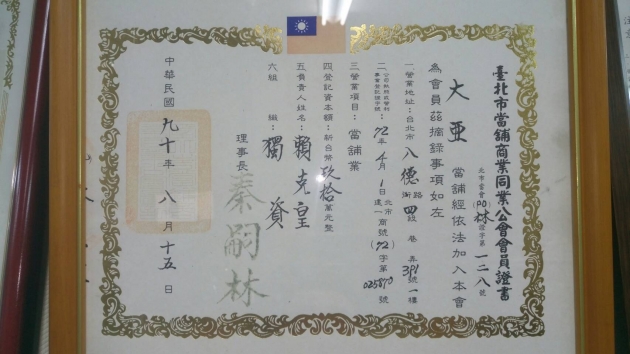 臺北市當舖商業同業公會會員證書
北市當會(90)林證字第一二八號
大亜當舖經依法加入本會
為會員茲摘錄事項如左
一營業地址：台北市八德路四段 巷 弄391號一樓
二公司執照或營利事業登記證字號：72年4月1日北市建一商號(72)字第025870號
三營業項目：當舖業
四登記資本額：新台幣玖拾萬元整
五負責人姓名：賴克皇
六組織：獨資
理事長 秦嗣林
中華民國九十年八月十五日